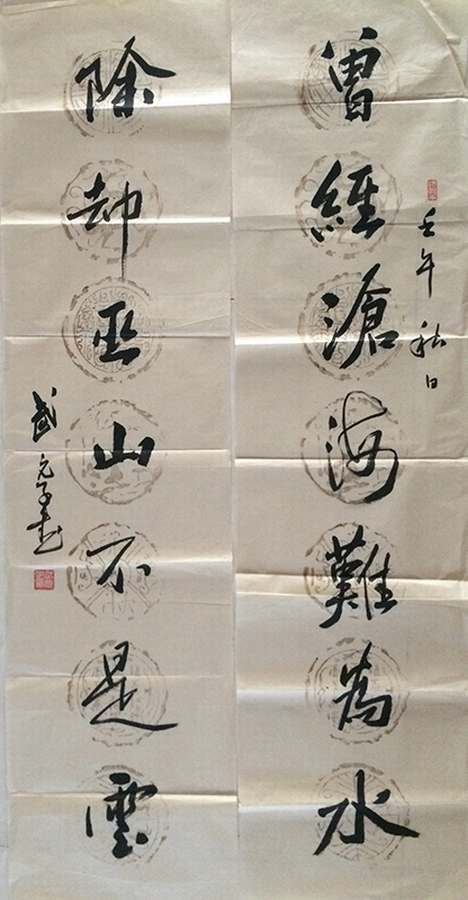 曾經滄海難為水
壬午秋日
除却巫山不是雲
武元子書